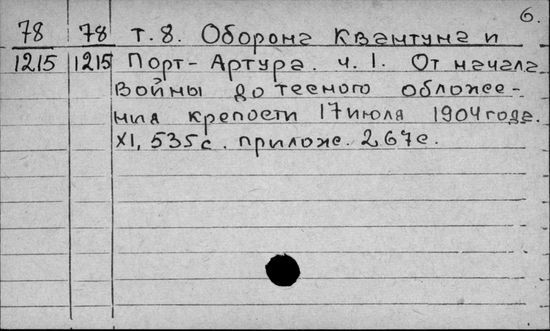 6.
78 78 т. 8. Оборона Квантуна и
1215 1215 Порт-Артура. ч. 1. От начала
войны до тесного обложе-
ния крепости 17 июля 1904 года.
XI, 535 с. прилож. 267 с.